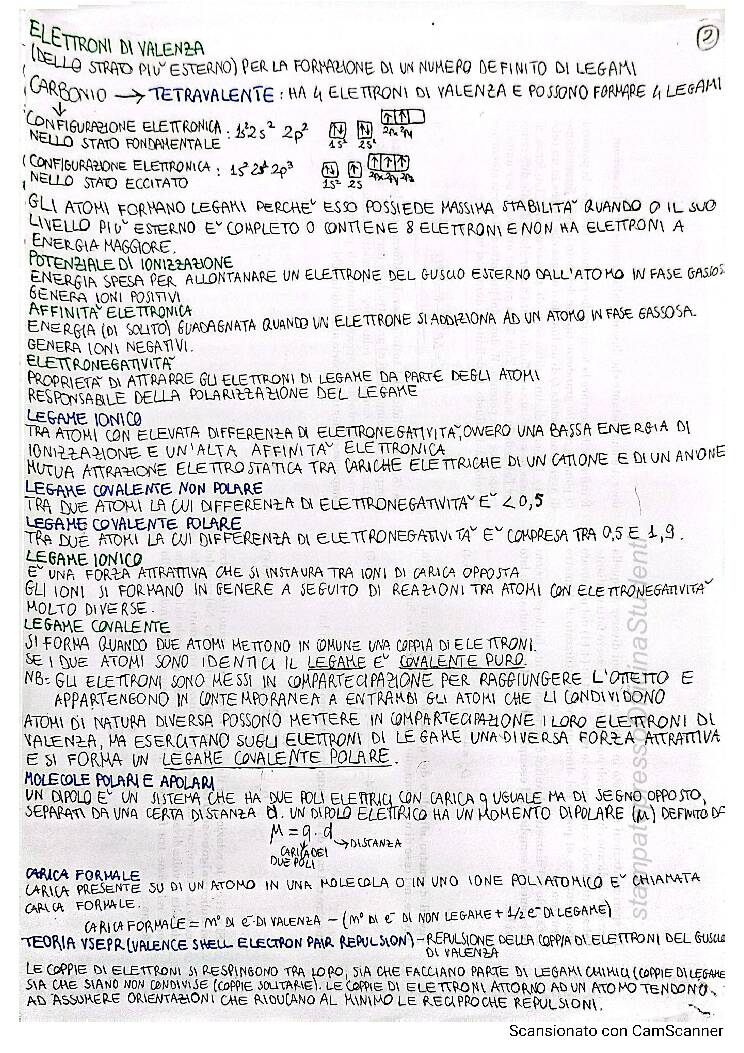 2
ELETTRONI DI VALENZA
(DELLO STRATO PIU' ESTERNO) PER LA FORMAZIONE DI UN NUMERO DEFINITO DI LEGAMI
CARBONIO → TETRAVALENTE : HA 4 ELETTRONI DI VALENZA E POSSONO FORMARE 4 LEGAMI
CONFIGURAZIONE ELETTRONICA : 1s² 2s² 2p²
NELLO STATO FONDAMENTALE
1s² 2s² 2px 2py
CONFIGURAZIONE ELETTRONICA : 1s² 2s¹ 2p³
NELLO STATO ECCITATO
1s² 2s 2px 2py 2pz
GLI ATOMI FORMANO LEGAMI PERCHE' ESSO POSSIEDE MASSIMA STABILITA' QUANDO O IL SUO
LIVELLO PIU' ESTERNO E' COMPLETO O CONTIENE 8 ELETTRONI E NON HA ELETTRONI A
ENERGIA MAGGIORE.
POTENZIALE DI IONIZZAZIONE
ENERGIA SPESA PER ALLONTANARE UN ELETTRONE DEL GUSCIO ESTERNO DALL'ATOMO IN FASE GASSOS
GENERA IONI POSITIVI
AFFINITA' ELETTRONICA
ENERGIA (DI SOLITO) GUADAGNATA QUANDO UN ELETTRONE SI ADDIZIONA AD UN ATOMO IN FASE GASSOSA.
GENERA IONI NEGATIVI.
ELETTRONEGATIVITA'
PROPRIETA' DI ATTRARRE GLI ELETTRONI DI LEGAME DA PARTE DEGLI ATOMI
RESPONSABILE DELLA POLARIZZAZIONE DEL LEGAME
LEGAME IONICO
TRA ATOMI CON ELEVATA DIFFERENZA DI ELETTRONEGATIVITA', OVVERO UNA BASSA ENERGIA DI
IONIZZAZIONE E UN'ALTA AFFINITA' ELETTRONICA
MUTUA ATTRAZIONE ELETTROSTATICA TRA CARICHE ELETTRICHE DI UN CATIONE E DI UN ANIONE
LEGAME COVALENTE NON POLARE
TRA DUE ATOMI LA CUI DIFFERENZA DI ELETTRONEGATIVITA' E' < 0,5
LEGAME COVALENTE POLARE
TRA DUE ATOMI LA CUI DIFFERENZA DI ELETTRONEGATIVITA' E' COMPRESA TRA 0,5 E 1,9.
LEGAME IONICO
E' UNA FORZA ATTRATTIVA CHE SI INSTAURA TRA IONI DI CARICA OPPOSTA
GLI IONI SI FORMANO IN GENERE A SEGUITO DI REAZIONI TRA ATOMI CON ELETTRONEGATIVITA'
MOLTO DIVERSE.
LEGAME COVALENTE
SI FORMA QUANDO DUE ATOMI METTONO IN COMUNE UNA COPPIA DI ELETTRONI.
SE I DUE ATOMI SONO IDENTICI IL LEGAME E' COVALENTE PURO.
NB: GLI ELETTRONI SONO MESSI IN COMPARTECIPAZIONE PER RAGGIUNGERE L'OTTETTO E
APPARTENGONO IN CONTEMPORANEA A ENTRAMBI GLI ATOMI CHE LI CONDIVIDONO
ATOMI DI NATURA DIVERSA POSSONO METTERE IN COMPARTECIPAZIONE I LORO ELETTRONI DI
VALENZA, MA ESERCITANO SUGLI ELETTRONI DI LEGAME UNA DIVERSA FORZA ATTRATTIVA
E SI FORMA UN LEGAME COVALENTE POLARE.
MOLECOLE POLARI E APOLARI
UN DIPOLO E' UN SISTEMA CHE HA DUE POLI ELETTRICI CON CARICA q UGUALE MA DI SEGNO OPPOSTO,
SEPARATI DA UNA CERTA DISTANZA d. UN DIPOLO ELETTRICO HA UN MOMENTO DIPOLARE (μ) DEFINITO DA
μ = q · d
→ DISTANZA
CARICA DEI
DUE POLI
CARICA FORMALE
CARICA PRESENTE SU DI UN ATOMO IN UNA MOLECOLA O IN UNO IONE POLIATOMICO E' CHIAMATA
CARICA FORMALE.
CARICA FORMALE = n° DI e⁻ DI VALENZA - (n° DI e⁻ DI NON LEGAME + 1/2 e⁻ DI LEGAME)
TEORIA VSEPR (VALENCE SHELL ELECTRON PAIR REPULSION) - REPULSIONE DELLA COPPIA DI ELETTRONI DEL GUSCIO
DI VALENZA
LE COPPIE DI ELETTRONI SI RESPINGONO TRA LORO, SIA CHE FACCIANO PARTE DI LEGAMI CHIMICI (COPPIE DI LEGAME
SIA CHE SIANO NON CONDIVISE (COPPIE SOLITARIE). LE COPPIE DI ELETTRONI ATTORNO AD UN ATOMO TENDONO
AD ASSUMERE ORIENTAZIONI CHE RIDUCANO AL MINIMO LE RECIPROCHE REPULSIONI.
Scansionato con CamScanner